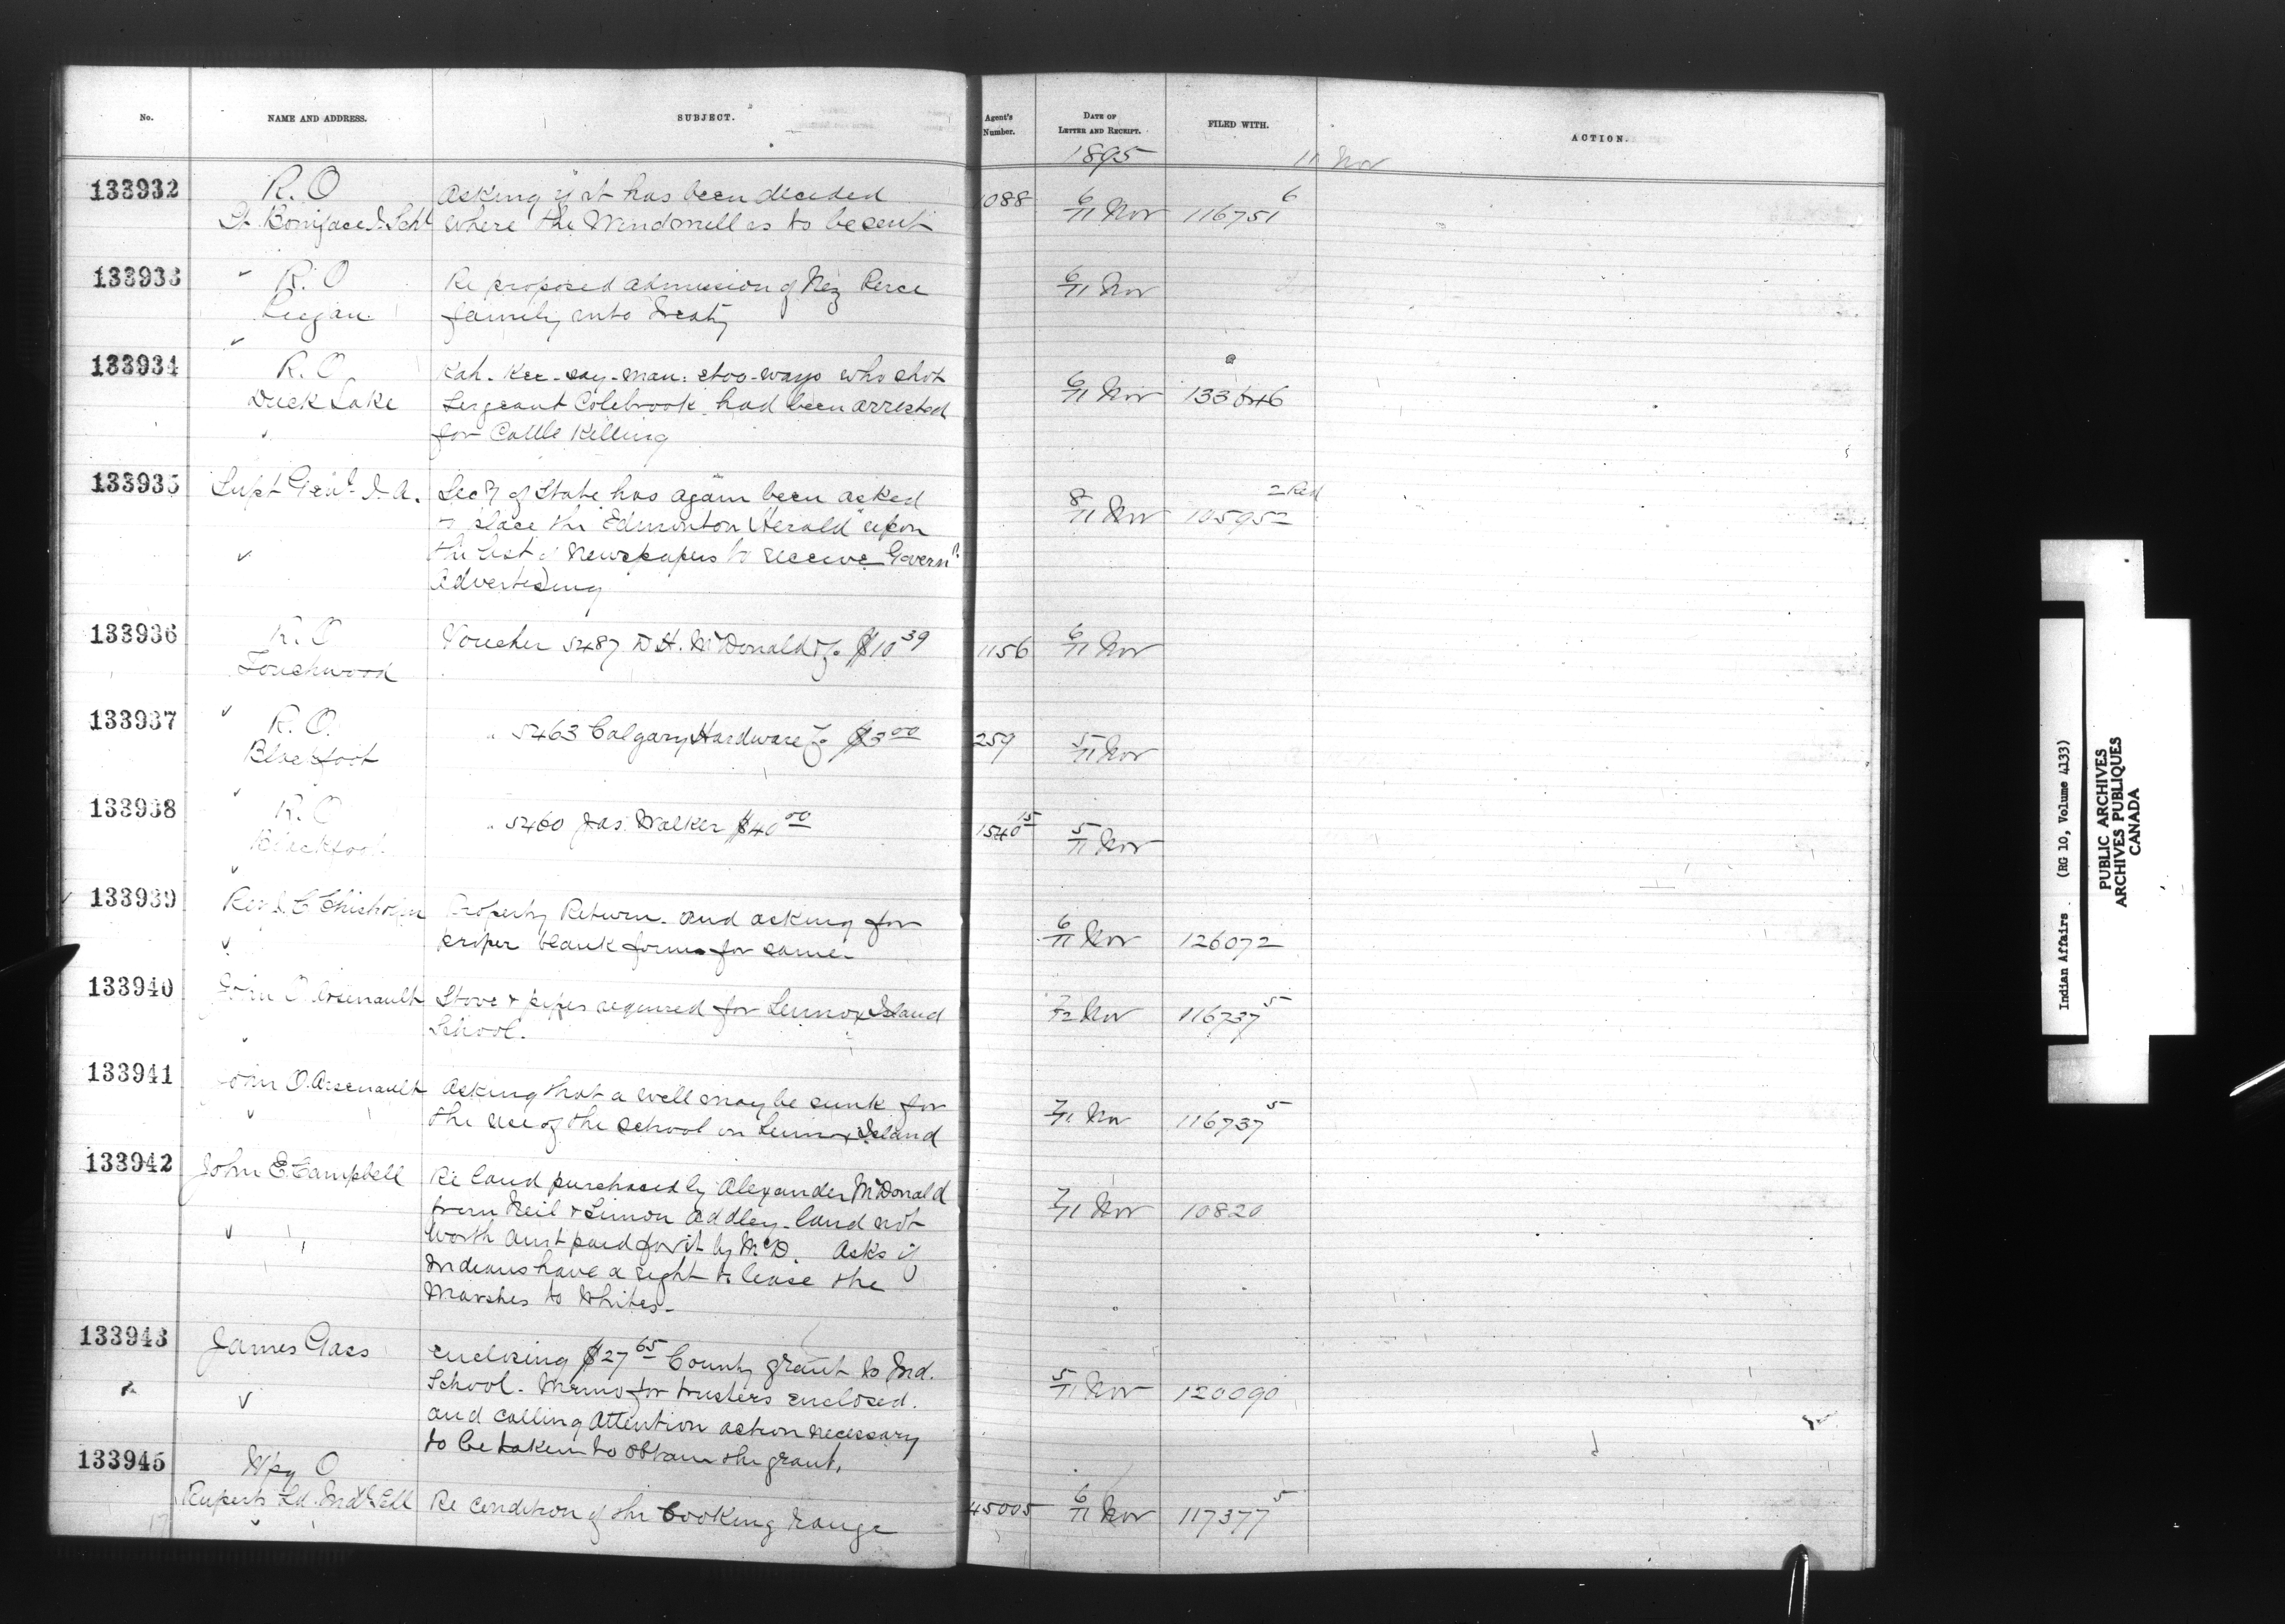 No. NAME AND ADDRESS. SUBJECT. Agent's Number. DATE OF LETTER AND RECEIPT. FILED WITH. ACTION.
1895 11 Nov
133932 R.O Asking if it has been decided 1088 6/11 Nov 116751 6
St. Boniface I. Schl where the Windmill is to be sent
133933 R.O Re proposed admission of Nez Perce 6/11 Nov
Peigan family into Treaty
133934 R.O Kah-Kee-say-man-etoo-ways who shot 6/11 Nov a
Duck Lake Sergeant Colebrook had been arrested
for Cattle Killing
133935 Supt Genl I.A. Secy of State has again been asked 8/11 Nov 105952 2 Red
to place the "Edmonton Herald" upon
the list of Newspapers to receive Governt
Advertising
133936 R.O Voucher 5487 D.H. McDonald & Co $10 39 1156 6/11 Nov
Touchwood
133937 R.O. " 5463 Calgary Hardware Co $3 00 259 5/11 Nov
Blackfoot
133938 R.O " 5460 Jas. Walker $40 00 1540 15 5/11 Nov
Blackfoot
133939 Chisholm Property Return and asking for 6/11 Nov 126072
proper blank forms for same
133940 John O. Arsenault Stove & pipes required for Lennox Island 7/12 Nov 116737 5
School.
133941 John O. Arsenault Asking that a well may be sunk for 7/11 Nov 116737 5
the use of the school on Lennox Island
133942 John E. Campbell Re land purchased by Alexander McDonald 7/11 Nov 10820
from Neil & Simon Addley - land not
worth amt paid for it by McD. Asks if
Indians have a right to lease the
Marshes to Whites -
133943 James Gass Enclosing $27 65 County grant to Ind. 5/11 Nov 120090
School - Memo for trustees enclosed.
and calling attention action necessary
to be taken to obtain the grant,
133945 Wpg O
Ruperts Ld. Indl Re condition of the Cooking range 45005 6/11 Nov 117377 5
Indian Affairs. (RG 10, Volume 4133)
PUBLIC ARCHIVES
ARCHIVES PUBLIQUES
CANADA